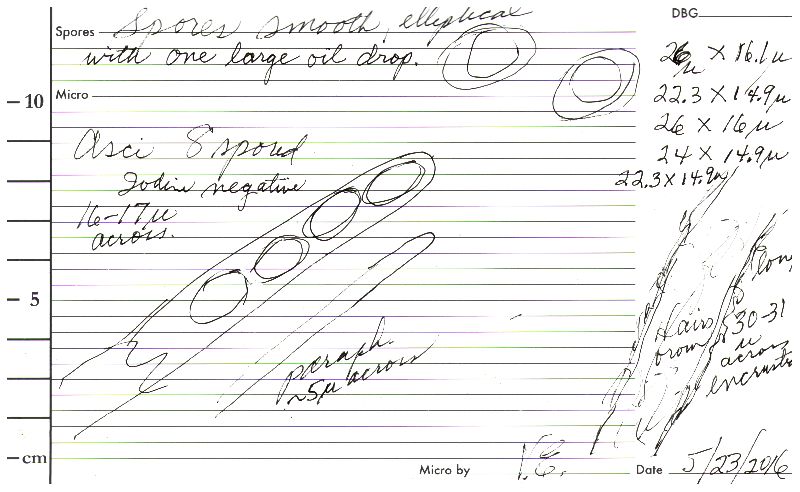 Spores Spores smooth, elliptical
with one large oil drop.
DBG
26 X 16.1µ
µ
22.3 X 14.9µ
26 X 16µ
24 X 14.9µ
22.3 X 14.9µ
10
Micro
Asci 8 spored
Iodine negative
16-17µ
across.
5
paraph.
~5µ across
long
Hairs 530-31
brown µ
across
encrusted
cm
Micro by V.E.
Date 5/23/2016